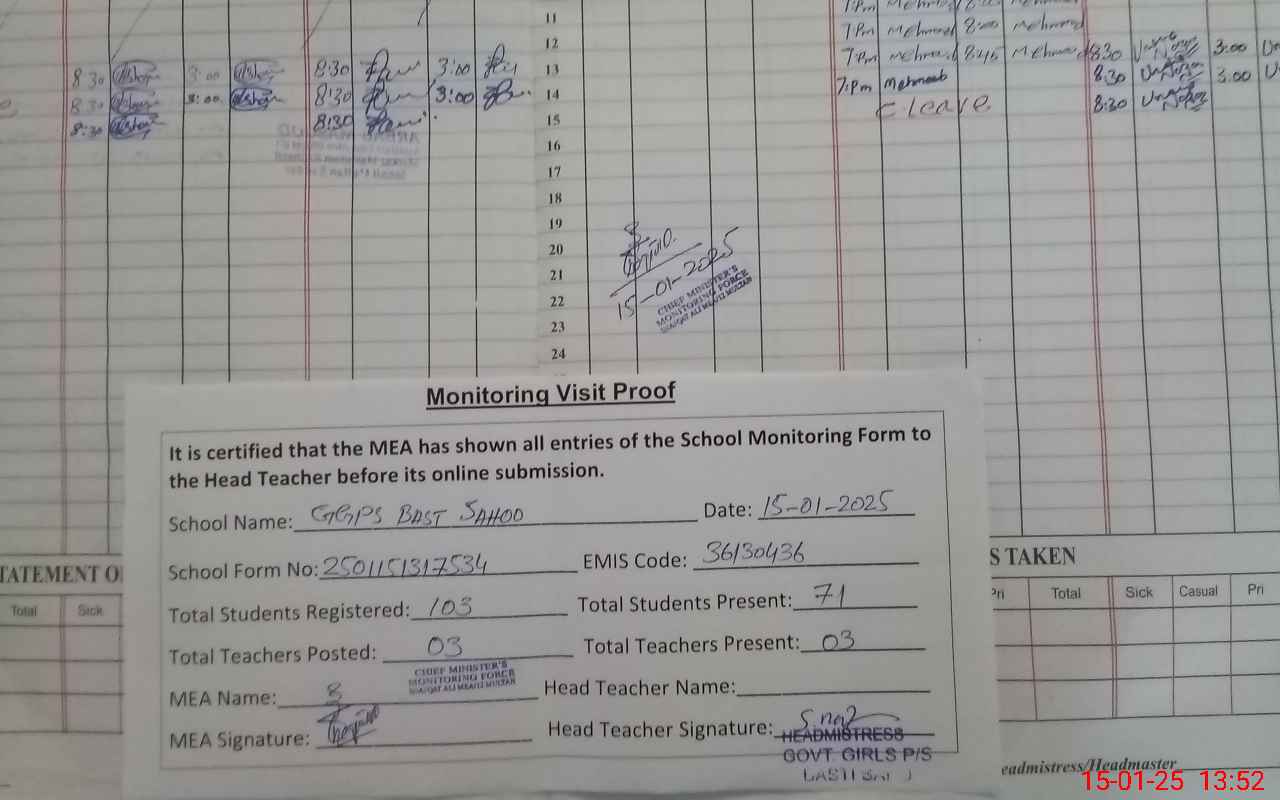 11
12
13
14
15
16
17
18
19
20
21
22
23
24
7Pm Mehmood 8:20 Mehmood
7Pm Mehmood 8:45 Mehmood 8:30 3:00
7:Pm Mehmood 8:30 3:00
C leave 8:30
8:30 3:00 8:30 3:00
8:30 3:00 8:30 3:00
8:30 8:30
15-01-2025
CHIEF MINISTER'S
MONITORING FORCE
LIAQAT ALI MEA(1) MULTAN
Monitoring Visit Proof
It is certified that the MEA has shown all entries of the School Monitoring Form to
the Head Teacher before its online submission.
School Name: GGPS BAST SAHOO Date: 15-01-2025
School Form No: 2501151317534 EMIS Code: 36130436
Total Students Registered: 103 Total Students Present: 71
Total Teachers Posted: 03 Total Teachers Present: 03
CHIEF MINISTER'S
MONITORING FORCE
LIAQAT ALI MEA(1) MULTAN
MEA Name: Head Teacher Name:
MEA Signature: Head Teacher Signature:
HEADMISTRESS
GOVT. GIRLS P/S
TATEMENT O
Total Sick
S TAKEN
Pri Total Sick Casual Pri
eadmistress/Headmaster
15-01-25 13:52